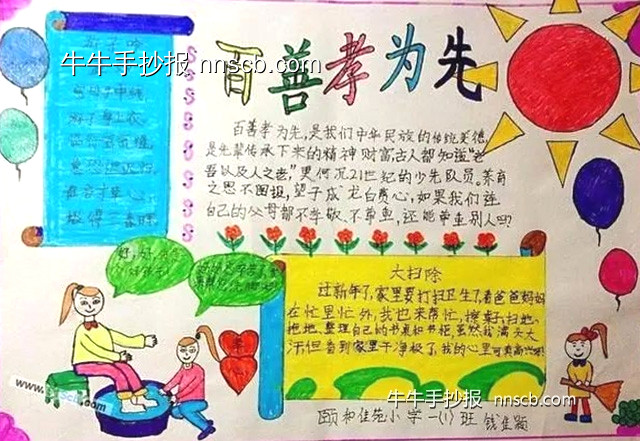 牛牛手抄报 nnscb.com
百善孝为先
慈母手中线,
游子身上衣,
临行密密缝,
意恐迟迟归,
谁言寸草心,
报得三春晖
百善孝为先,是我们中华民族的传统美德,
是先辈传承下来的精神财富,古人都知道"老
吾以及人之老,"更何况21世纪的少先队员。养育
之恩不图报,望子成龙白费心,如果我们连
自己的父母都不孝敬、不尊重,还能尊重别人吗?
大扫除
过新年了,家里要打扫卫生了,看爸爸妈妈
在忙里忙外,我也来帮忙,擦桌子,扫地,
拖地,整理自己的书桌和书柜,虽然我满头大
汗,但看到家里干净极了,我的心里可真高兴呀!
牛牛手抄报 nnscb.com
颐和佳苑小学一(1)班